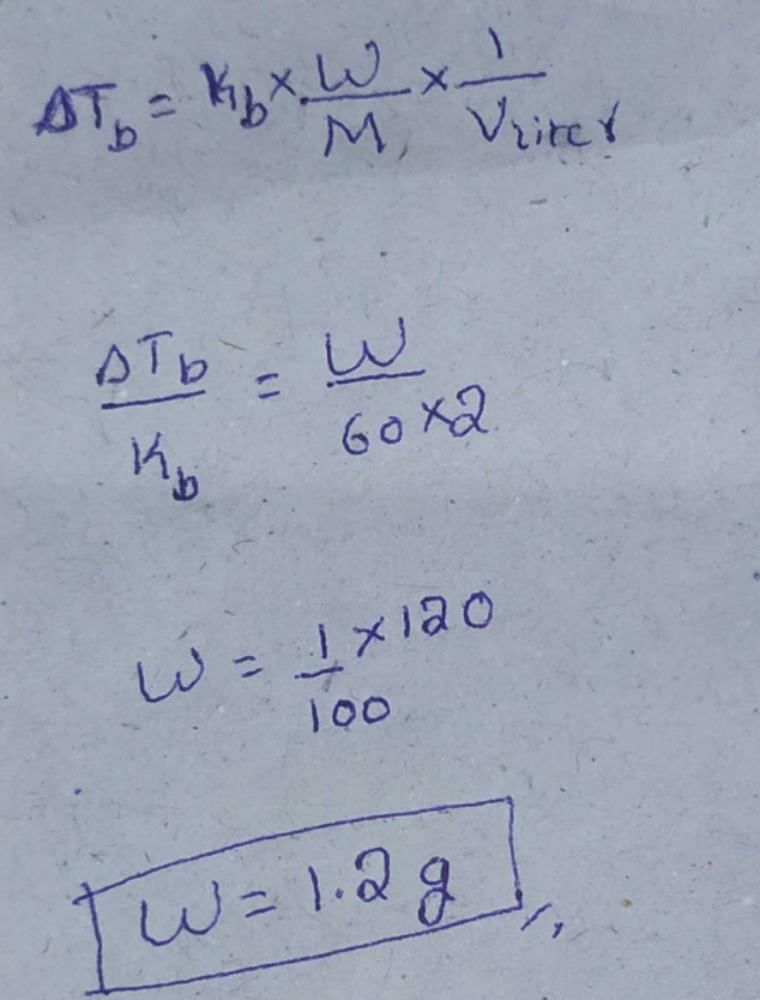 ΔT_b = K_b × W/M × 1/V_liter
ΔT_b/K_b = W/60×2
W = 1/100 × 120
W = 1.2 g